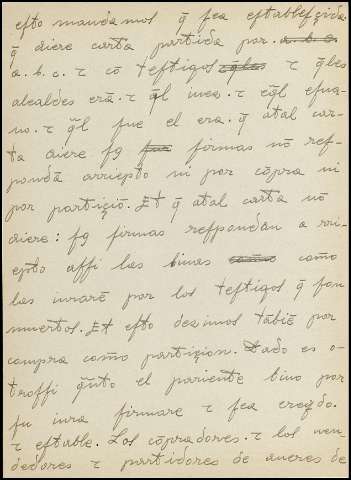 efto mandamos q̃ fea eftablefçida.
q̃ diere carta partida por. a. b. c.
a. b. c. τ cõ teftigos τ q̃les
alcaldes erã. τ q̃l iuez. τ
no. τ q̃l fue el era. q̃ atal car-
ta diere fg firmas nõ ref-
pondã arriepto ni por cõpra ni
por partiçiõ. Et q̃ atal carta nõ
diere: fg firmas reffpondan a rri-
epto affi las biuas como
las iurarẽ por los teftigos q̃ fon
muertos. Et efto dezimos tãbiẽ por
compra como partiçion. Dado es o-
troffi q̃nto el pariente biuo por
fu iura firmare τ fea creydo.
τ eftable. Los cõpradores. τ los uen-
dedores τ partidores de aueres de